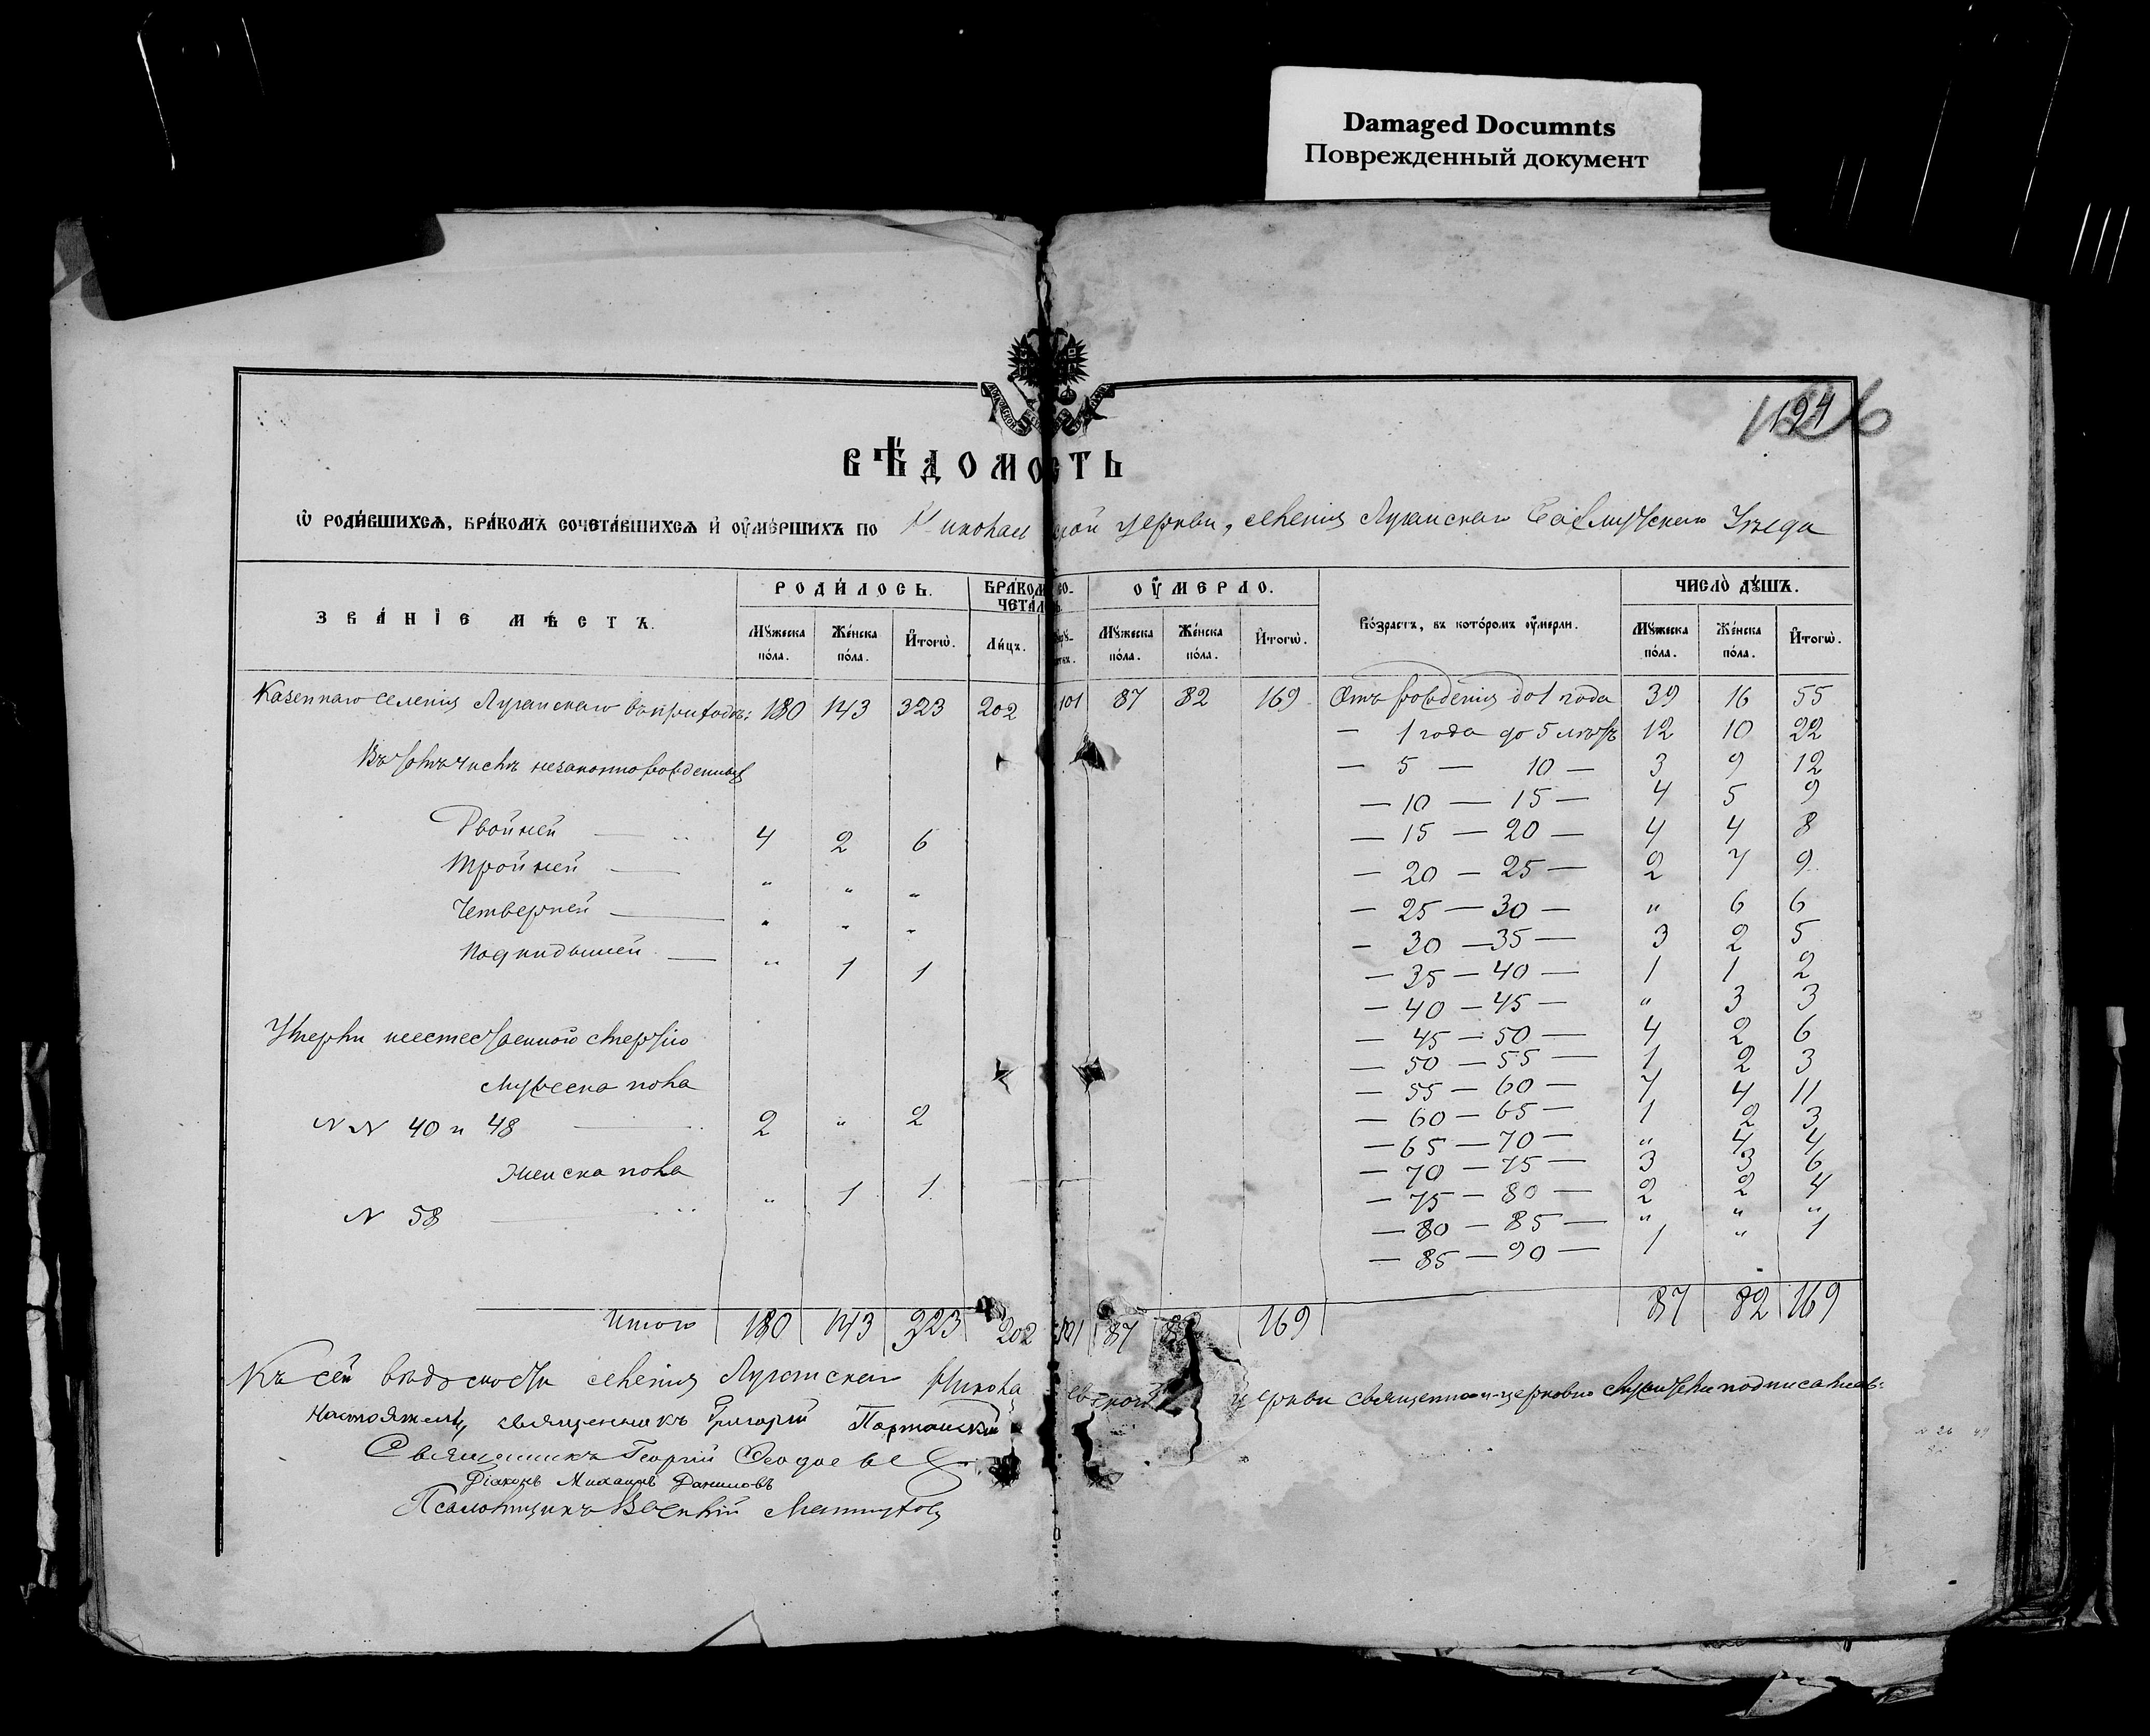 Damaged Documnts
Поврежденный документ
194
ВѢДОМОСТЬ
Ѡ РОДИВШИХСѦ, БРАКОМЪ СОЧЕТАВШИХСѦ И ОУМЕРШИХЪ ПО Николаевской церкви, селенія Луганскаго Бахмутскаго Уѣзда
ЗВАНІЕ МѢСТЪ. РОДИЛОСЬ. БРАКОМЪ СОЧЕТАЛОСЬ ОУМЕРЛО. Возрастъ, въ которомъ оумерли. ЧИСЛО ДꙊШЪ.
Мꙋжеска пола. Женска пола. Итогѡ. Лицъ. Мꙋжеска пола. Женска пола. Итогѡ. Мꙋжеска пола. Женска пола. Итогѡ.
Казеннаго селенія Луганскаго въ приходѣ: 180 143 323 202 101 87 82 169 Отъ рожденія до 1 года 39 16 55
— 1 года до 5 лѣтъ 12 10 22
Въ томъ числѣ незаконнорожденныхъ — 5 — 10 — 3 9 12
— 10 — 15 — 4 5 9
Двойней — 4 2 6 — 15 — 20 — 4 4 8
Тройней — " " " — 20 — 25 — 2 7 9
Четверней — " " " — 25 — 30 — " 6 6
Подкидышей — " 1 1 — 30 — 35 — 3 2 5
— 35 — 40 — 1 1 2
— 40 — 45 — " 3 3
Умерли неестественною смертію — 45 — 50 — 4 2 6
— 50 — 55 — 1 2 3
Мужеска пола — 55 — 60 — 7 4 11
N N 40 и 48 — 2 " 2 — 60 — 65 — 1 2 3
— 65 — 70 — " 4 4
Женска пола — 70 — 75 — 3 3 6
N 58 — " 1 1 — 75 — 80 — 2 2 4
— 80 — 85 — " " "
— 85 — 90 — 1 " 1
Итого 180 143 323 202 101 87 82 169 87 82 169
Къ сей вѣдомости селенія Луганскаго Николаевской церкви священно-церковно служители подписались:
Настоятель, священникъ Григорій
Священникъ Георгій
Діаконъ Михаилъ Даниловъ
Псаломщикъ